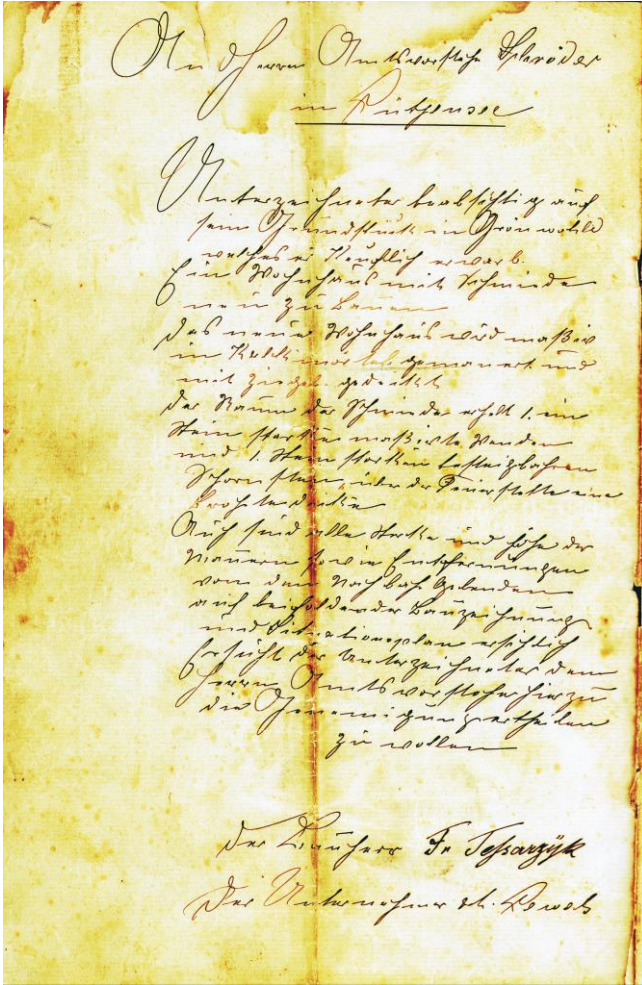 An d Herrn Amtsvorsteher Schröder
in Lütjensee
Unterzeichneter beabsichtig auf
sein Grundstück in Grönwohld
welches er Käuflich erwarb.
Ein Wohnhaus mit Schmiede
neu zu Bauen
Das neue Wohnhaus wird maßiv
in Kalkmörtel gemauert und
mit Ziegel gedeckt
Der Raum der Schmiede erhelt 1. ein
Stein starke maßivte Wenden
und 1. Stein starken besteigbahren
Schornstein, über der Feuerstelle eine
Decke
Auch sind alle Sterke und höhe der
Mauern sowie Entfernungen
von dem Nachbah Gebeuden
auf beifoldender Bauzeichnung
und Situationsplan ersichtlich
Ersucht der Unterzeichneter dem
Herrn Amtsvorsteher hierzu
die Genemigung ertheilen
zu wollen
Der Bauherr Fr Teßarzÿk
Der Unternehmer